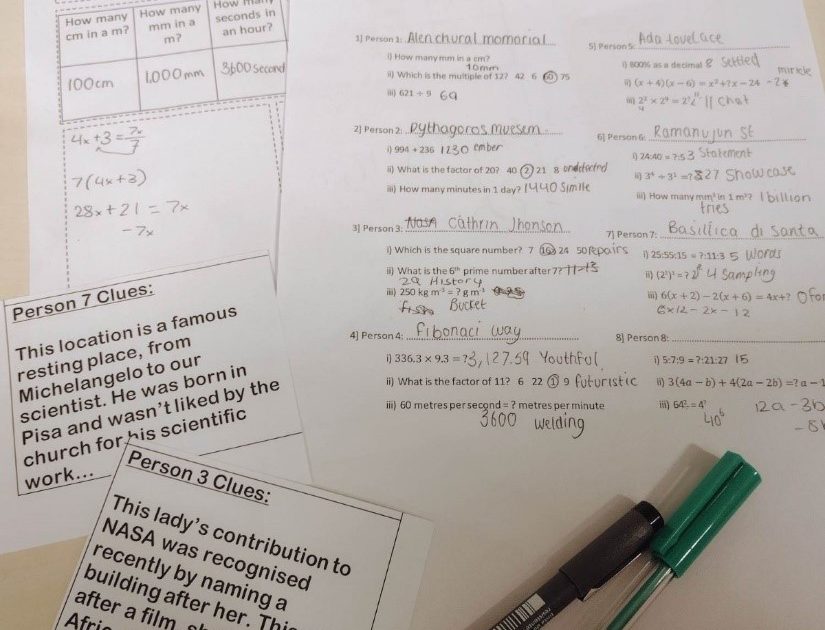 How many cm in a m?
How many mm in a m?
How many seconds in an hour?
100cm
1,000mm
3600 second
4x + 3 = 7x/7
7(4x+3)
28x + 21 = 7x
- 7x
Person 7 Clues:
This location is a famous
resting place, from
Michelangelo to our
scientist. He was born in
Pisa and wasn't liked by the
church for his scientific
work...
Person 3 Clues:
This lady's contribution to
NASA was recognised
recently by naming a
building after her. This
after a film
1) Person 1: Alen chural momorial
i) How many mm in a cm?
10mm
ii) Which is the multiple of 12? 42 6 60 75
iii) 621 ÷ 9 69
2) Person 2: Pythagoros muesem
i) 994 + 236 1230 ember
ii) What is the factor of 20? 40 2 21 8
iii) How many minutes in 1 day? 1440 Simile
3) Person 3: NASA Cathrin Jhonson
i) Which is the square number? 7 16 24 50 repairs
ii) What is the 6th prime number after 7?
29 History
iii) 250 kg m⁻³ = ? g m⁻³
Bucket
4) Person 4: fibonaci way
i) 336.3 × 9.3 = ? 3,127.59 Youthful
ii) What is the factor of 11? 6 22 1 9 futuristic
iii) 60 metres per second = ? metres per minute
3600 welding
5) Person 5: Ada lovelace
i) 800% as a decimal 8 settled
ii) (x + 4)(x − 6) = x² + ?x − 24 -2
iii) 2² × 2⁹ = 2? 11 chat
6) Person 6: Ramanujun St
i) 24:40 = ?:5 3 Statement
ii) 3⁴ ÷ 3¹ = ? 27 Showcase
iii) How many mm³ in 1 m³? 1 billion
tries
7) Person 7: Basillica di Santa
i) 25:55:15 = ?:11:3 5 words
ii) (2²)³ = ? 64 Sampling
iii) 6(x + 2) − 2(x + 6) = 4x+? 0
6x12 - 2x - 12
8) Person 8:
i) 5:7:9 = ?:21:27 15
ii) 3(4a − b) + 4(2a − 2b) = ? a −
iii) 64² = 4?
12a - 3b